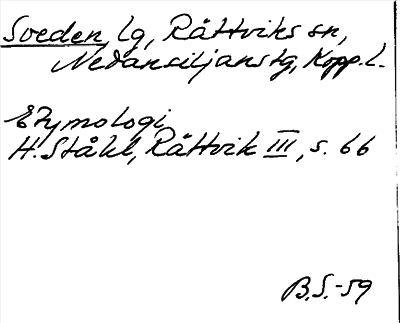 Sveden, lg, Rättviks sn,
Nedansiljans tg, Kopp. l.
Etymologi
H. Ståhl, Rättvik III, s. 66
B.S.-59